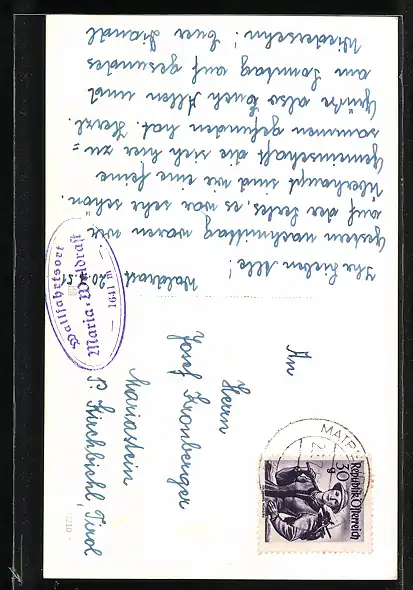 Waldrast 20.
Ihr lieben Alle!
Gestern nachmittag waren wir
auf der Serles, es war sehr schön.
Überhaupt sind wir eine feine
Gemeinschaft die sich hier zu=
sammen gefunden hat. Herzl.
Grüße also Euch Allen und
am Sonntag auf gesundes
Wiedersehn! Euer Hiandl
Wallfahrtsort
Maria-Waldrast
1641 m
An
Herrn
Josef Kronberger
Mariastein
P. Kirchbichl, Tirol
MATREI
Republik Österreich
30 g